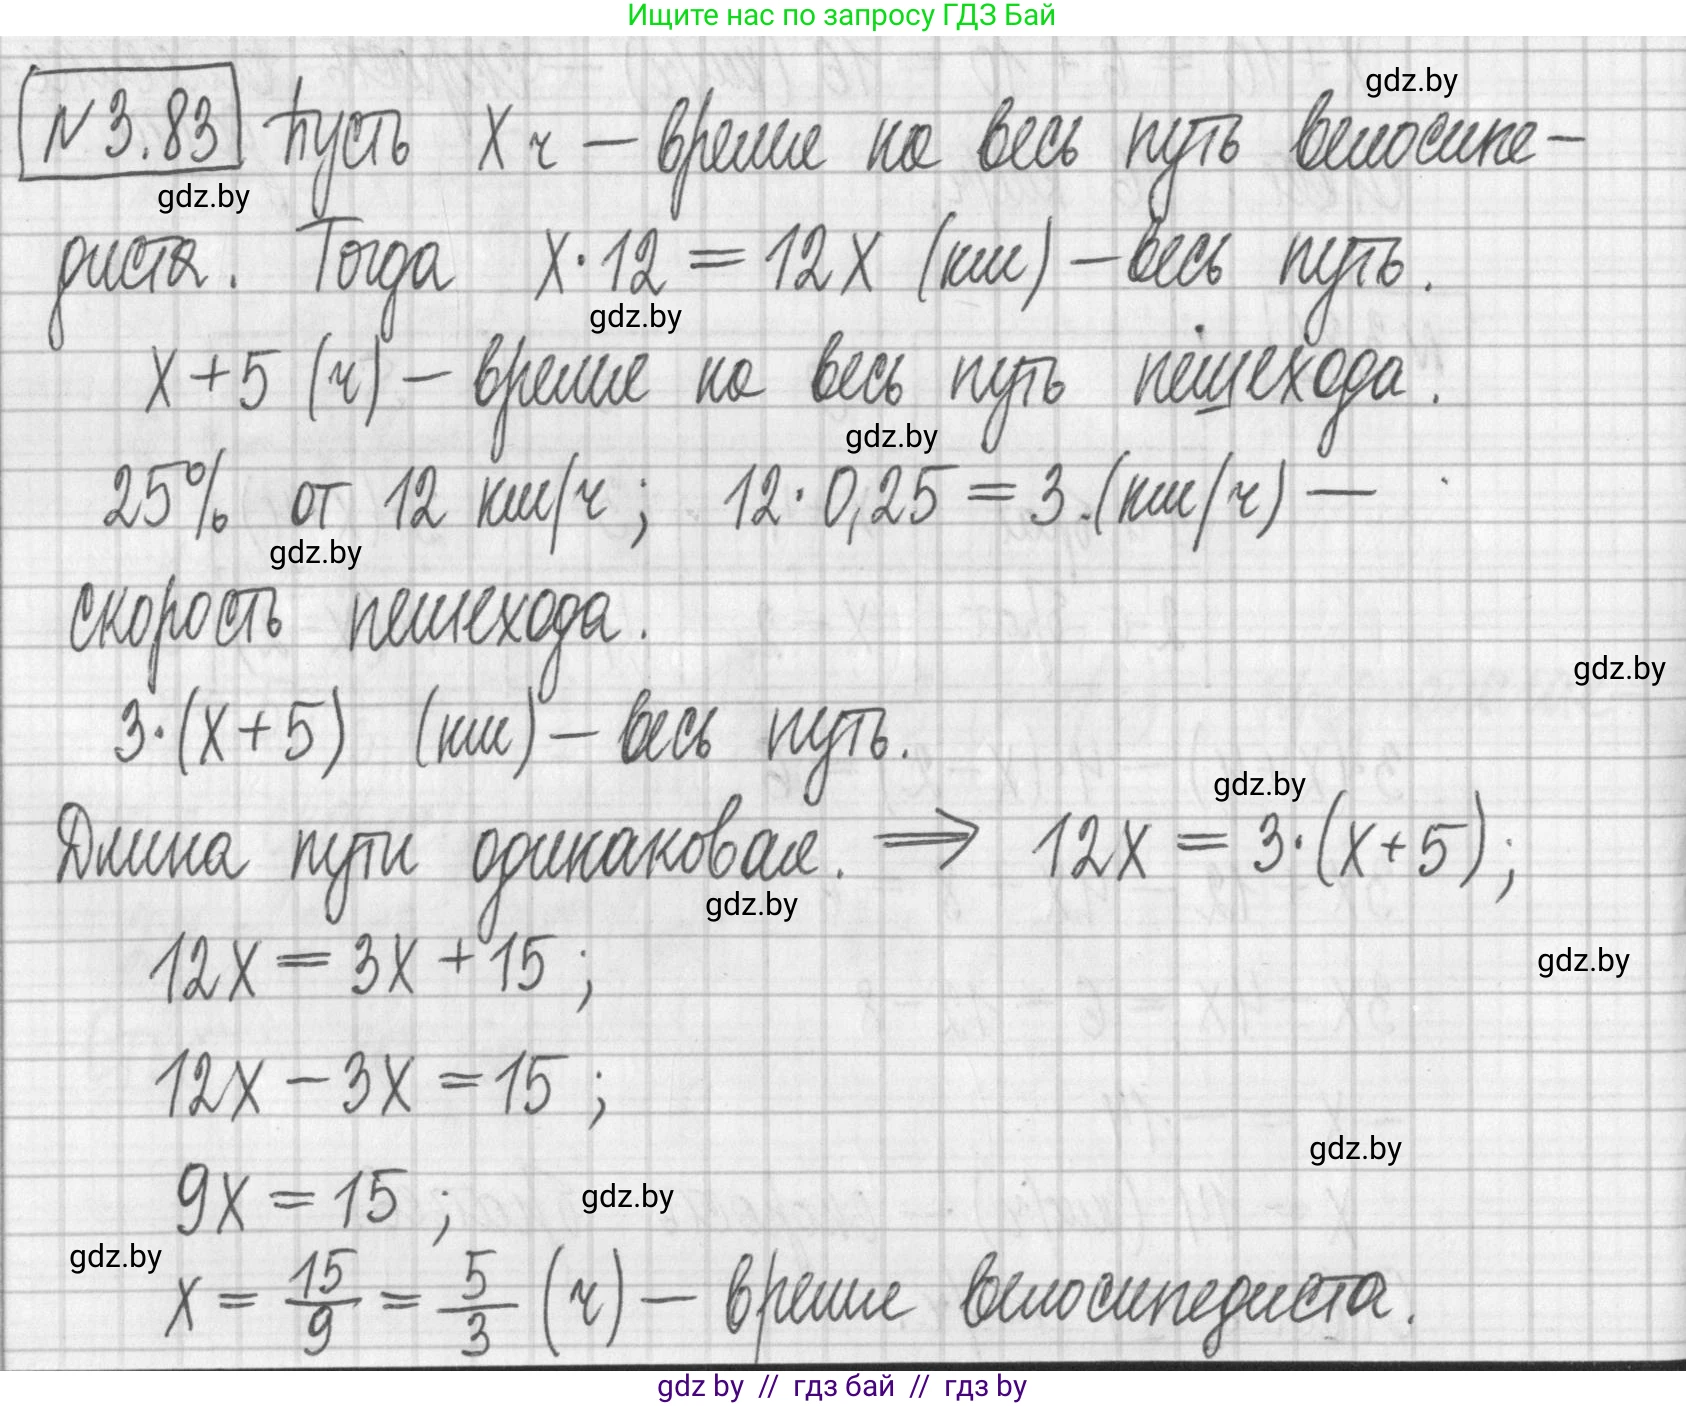 Ищите нас по запросу ГДЗ Бай
gdz.by
N 3.83 Пусть x ч – время на весь путь велосипе–
gdz.by
диста. Тогда x·12 = 12x (км) – весь путь.
gdz.by
x+5 (ч) – время на весь путь пешехода.
gdz.by
25% от 12 км/ч; 12·0,25 = 3 (км/ч) –
gdz.by
скорость пешехода.
gdz.by
3·(x+5) (км) – весь путь.
gdz.by
Длина пути одинаковая. ⟹ 12x = 3·(x+5);
gdz.by
12x = 3x + 15;
gdz.by
12x – 3x = 15;
gdz.by
9x = 15;
gdz.by
gdz.by
x = 15/9 = 5/3 (ч) – время велосипедиста.
gdz by // гдз бай // гдз by